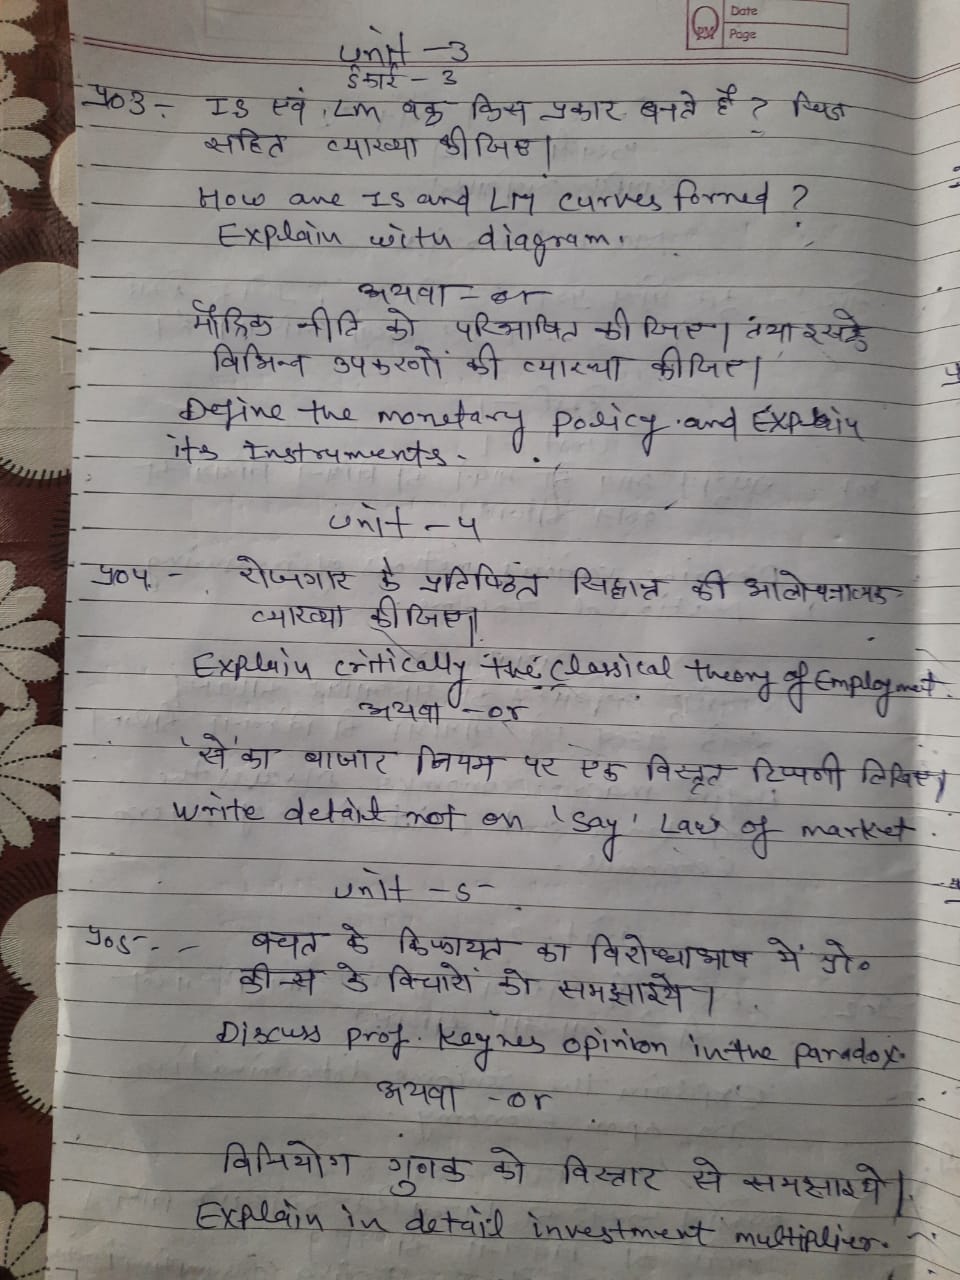 Date
Page
Unit - 3
ईकाई - 3
प्र03 - IS एवं LM वक्र किस प्रकार बनते है ? चित्र
सहित व्याख्या कीजिए।
How are IS and LM curves formed ?
Explain with diagram.
अथवा - or
मौद्रिक नीति को परिभाषित कीजिए। तथा इसके
विभिन्न उपकरणों की व्याख्या कीजिए।
Define the monetary policy and Explain
its Instruments.
Unit - 4
प्र04 - रोजगार के प्रतिष्ठित सिद्धान्त की आलोचनात्मक
व्याख्या कीजिए।
Explain critically the Classical theory of Employment.
अथवा - or
'से' का बाजार नियम पर एक विस्तृत टिप्पणी लिखिए।
Write detail not on 'Say' Law of market.
Unit - 5
प्र05 - बचत के किफायत का विरोधाभाष में प्रो०
कीन्स के विचारों को समझाइये।
Discuss prof. Keynes opinion in the paradox.
अथवा - or
विनियोग गुणक को विस्तार से समझाइये।
Explain in detail investment multiplier.